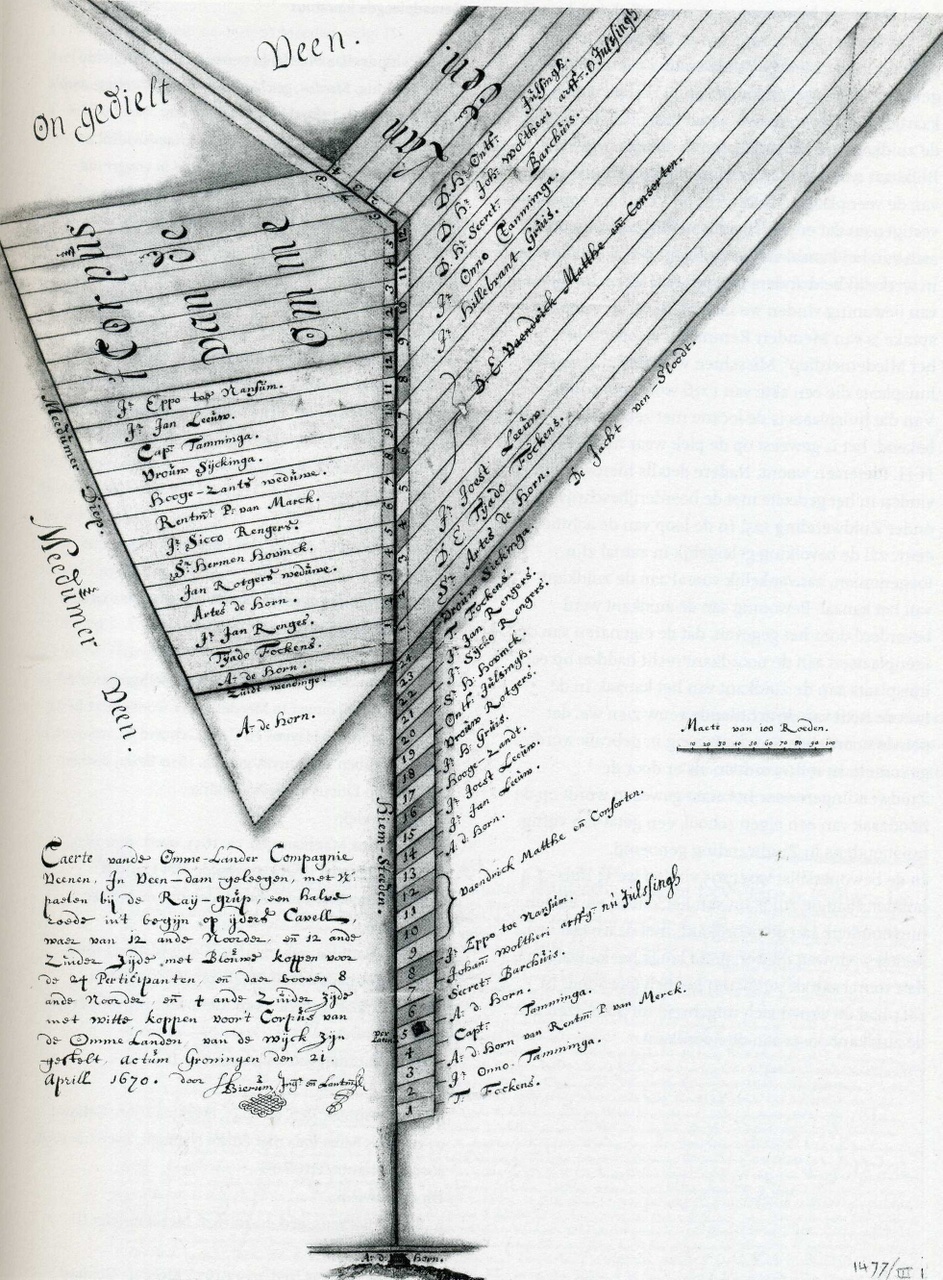 Veen.
on gedielt
Veen
Lan
D. Hr. Ontfr. Julsingh.
D. Hr. Joh. Woltheri arffn. O Julssingh
D. Hr. Secret. Barchuis.
Jr. Onno Tamminga.
Jr. Hillebrant Gruis.
D. E. Vaendrick Matthe en Consorten.
Jr. Joest Leeuw.
D. E. Tyado Fockens.
Sr. Artes de Horn.
De Jacht ven Sloodt.
t Corpus
vann de
Omme
Jr. Eppo toe Nansum.
Jr. Jan Leeuw.
Capt. Tamminga.
Vrouw Sijckinga.
Hooge-Zants weduwe.
Rentmr. P. van Marck.
Jr. Sicco Rengers.
Sr. Hermen Hovinck.
Jan Rotgers weduwe.
Artes de Horn.
Jr. Jan Renges.
Tyado Fockens.
A. de Horn.
Zuidt wendinge.
A. de Horn.
Medumer Diep.
Meedumer
Veen.
Vrouw Sickinga.
T. Fockens.
Jr. Jan Rengers.
Jr. Sycko Rengers.
Sr. H. Hovinck.
Ontfr. Julsingh.
Vrouw Rotgers.
Jr. H. Gruis.
Hooge-Zandt.
Jr. Joest Leeuw.
Jr. Jan Leeuw.
A. d. Horn.
Vaendrick Matthe en Consorten.
Jr. Eppo toe Nansum.
Johan Woltheri arffg. nu Julssingh
Secret. Barchuis.
A. d. Horn.
Capt. Tamminga.
A: d. Horn van Rentmr. P. van Merck.
Jr. Onno. Tamminga.
T. Fockens.
24
23
22
21
20
19
18
17
16
15
14
13
12
11
10
9
8
7
6
5
4
3
2
1
Maete van 100 Roeden.
10 20 30 40 50 60 70 80 90 100
Caerte vande Omme-Lander Compagnie
Veenen, In Veen-dam geleegen, met Nr.
paelen bij de Raij-grup, een halve
roede int begijn op ijders Cavell,
waer van 12 ande Noorder, en 12 ande
Zuider Zijde met Blouwe koppen voor
de 24 Perticipanten, en daer booven 8
ande Noorder, en 4 ande Zuider Zijde
met witte koppen voor't Corpus van
de Omme Landen, van de wijck Zijn
gestelt, actum Groningen den 21.
Aprill 1670. door
A. d. Horn.
1477/III i